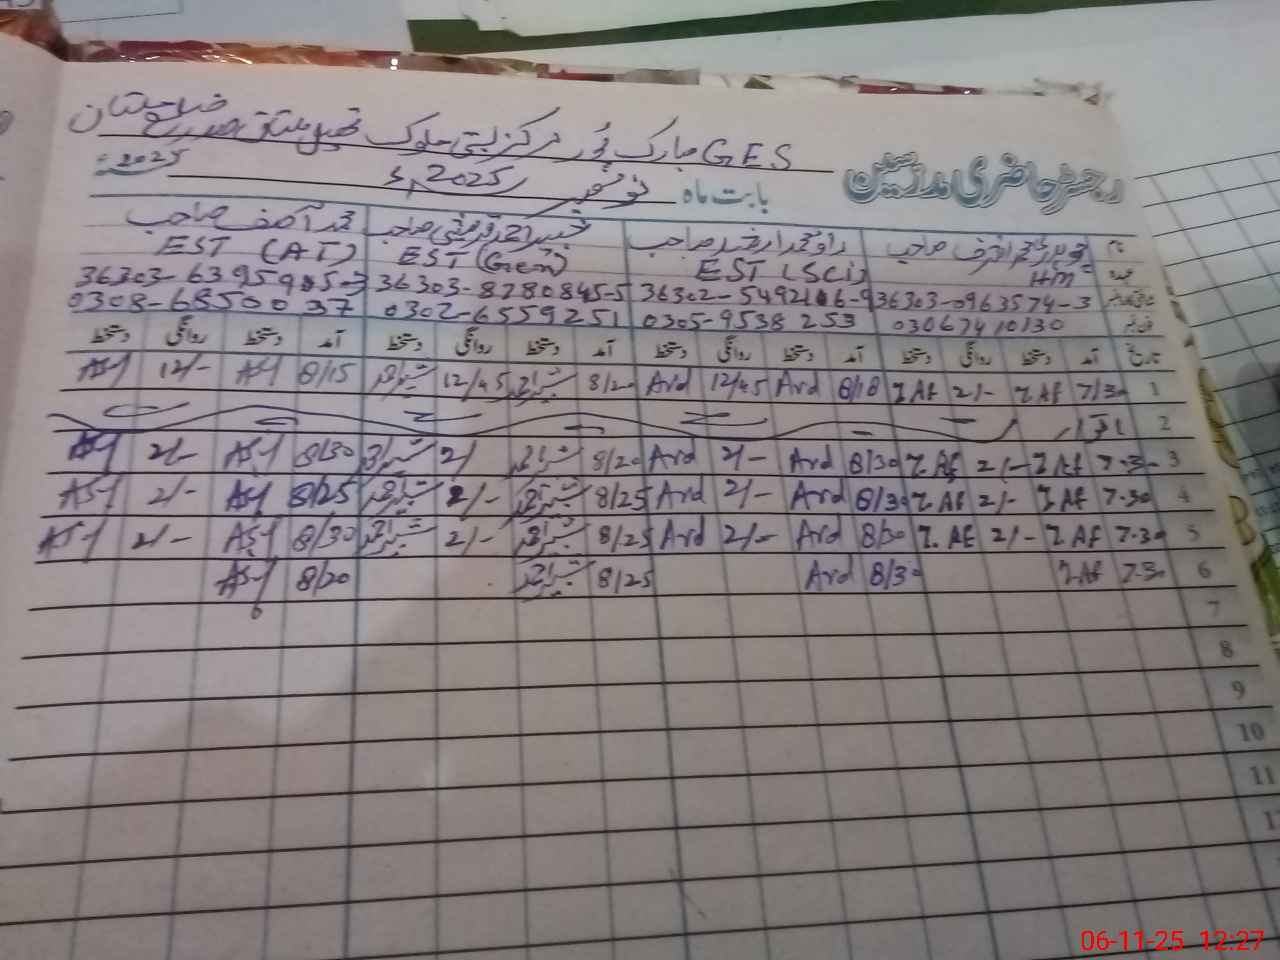 GES مبارک پور مرکز بستی ملوک تحصیل ملتان صدر ضلع ملتان
رجسٹر حاضری مدرسین بابت ماہ نومبر 2025ء 2025ء
نام چوہدری محمد اشرف صاحب راؤ محمد ارشد صاحب شبیر احمد قریشی صاحب محمد آصف صاحب
عہدہ HM EST (SCi) EST (Gen) EST (AT)
36303-0963574-3 36302-5492106-9 36303-8280845-5 36303-6395905-3
03067410130 0305-9538253 0302-6559251 0308-6850037
تاریخ آمد دستخط روانگی دستخط آمد دستخط روانگی دستخط آمد دستخط روانگی دستخط آمد دستخط روانگی دستخط
1 7/30 2/- 8/18 Ard 12/45 Ard 8/20 شبیر احمد 12/45 شبیر احمد 8/15 12/-
2 اتوار
3 7.30 2/- 8/30 Ard 2/- Ard 8/20 شبیر احمد 2/ شبیر احمد 8/30 2/-
4 7.30 2/- 8/30 Ard 2/- Ard 8/25 شبیر احمد 2/- شبیر احمد 8/25 2/-
5 7.30 2/- 8/30 Ard 2/- Ard 8/25 شبیر احمد 2/- شبیر احمد 8/30 2/-
6 7.30 8/30 Ard 8/25 شبیر احمد 8/20
7
8
9
10
11
06-11-25 12:27